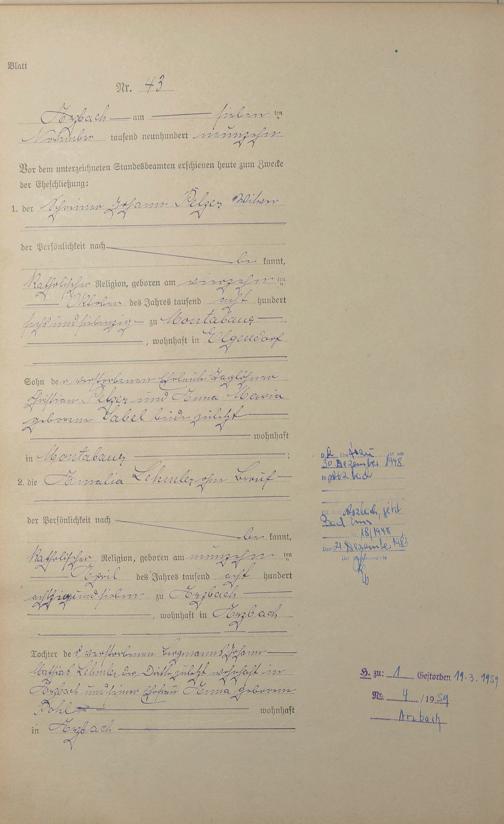 Blatt
Nr. 43
Arzbach am sieben ten
November tausend neunhundert neunzehn
Vor dem unterzeichneten Standesbeamten erschienen heute zum Zwecke
der Eheschließung:
1. der Schreiner Johann Pelzer Witwer
der Persönlichkeit nach
be kannt,
katholischer Religion, geboren am vierzehn ten
Oktober des Jahres tausend acht hundert
sechs und siebenzig zu Montabaur
, wohnhaft in Elgendorf
Sohn der verstorbenen Eheleute Taglöhner
Christian Pelzer und Anna Maria
geborene Zabel beide zuletzt
wohnhaft
in Montabaur ;
2. die Amalia Lehmler ohne Beruf
der Persönlichkeit nach
be kannt,
katholischer Religion, geboren am neunzehn ten
April des Jahres tausend acht hundert
achtzig und sieben zu Arzbach
, wohnhaft in Arzbach
Tochter des verstorbenen Bergmanns Johann
Mathias Lehmler, der Dritte zuletzt wohnhaft in
Arzbach und seiner Ehefrau Anna geborene
Pohl wohnhaft
in Arzbach
30 Dezember 1948
Arzbach, jetzt
Bad Ems
18/1948
H. zu: 1 Gestorben 19.3.1959
Nr. 4 /1959
Arzbach